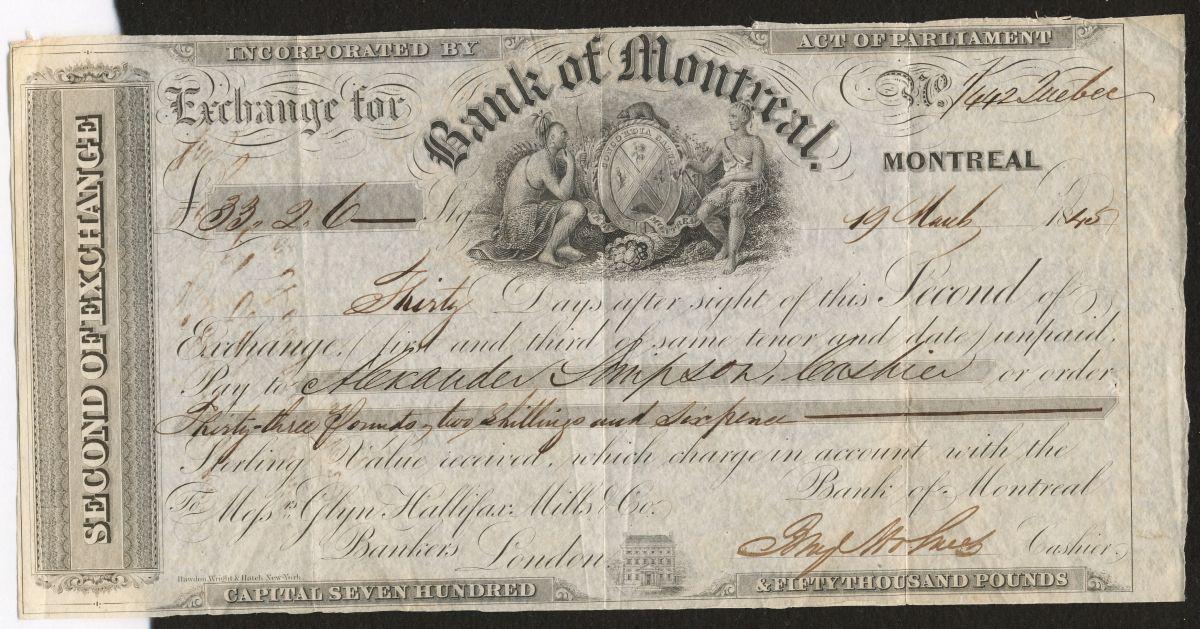 INCORPORATED BY ACT OF PARLIAMENT
Bank of Montreal.
Exchange for
No. 1/442 Quebec
MONTREAL
£33, 2, 6 Stg
19 March 1845
SECOND OF EXCHANGE
CONCORDIA SALUS
Thirty Days after sight of this Second of
Exchange, (first and third of same tenor and date) unpaid,
Pay to Alexander Simpson, Cashier or order,
Thirty-three Pounds, two Shillings and Sixpence
Sterling Value received, which charge in account with the
Bank of Montreal
To Messrs. Glyn Hallifax Mills & Co.
Bankers London
Cashier,
Rawdon, Wright & Hatch, New-York
CAPITAL SEVEN HUNDRED & FIFTY THOUSAND POUNDS